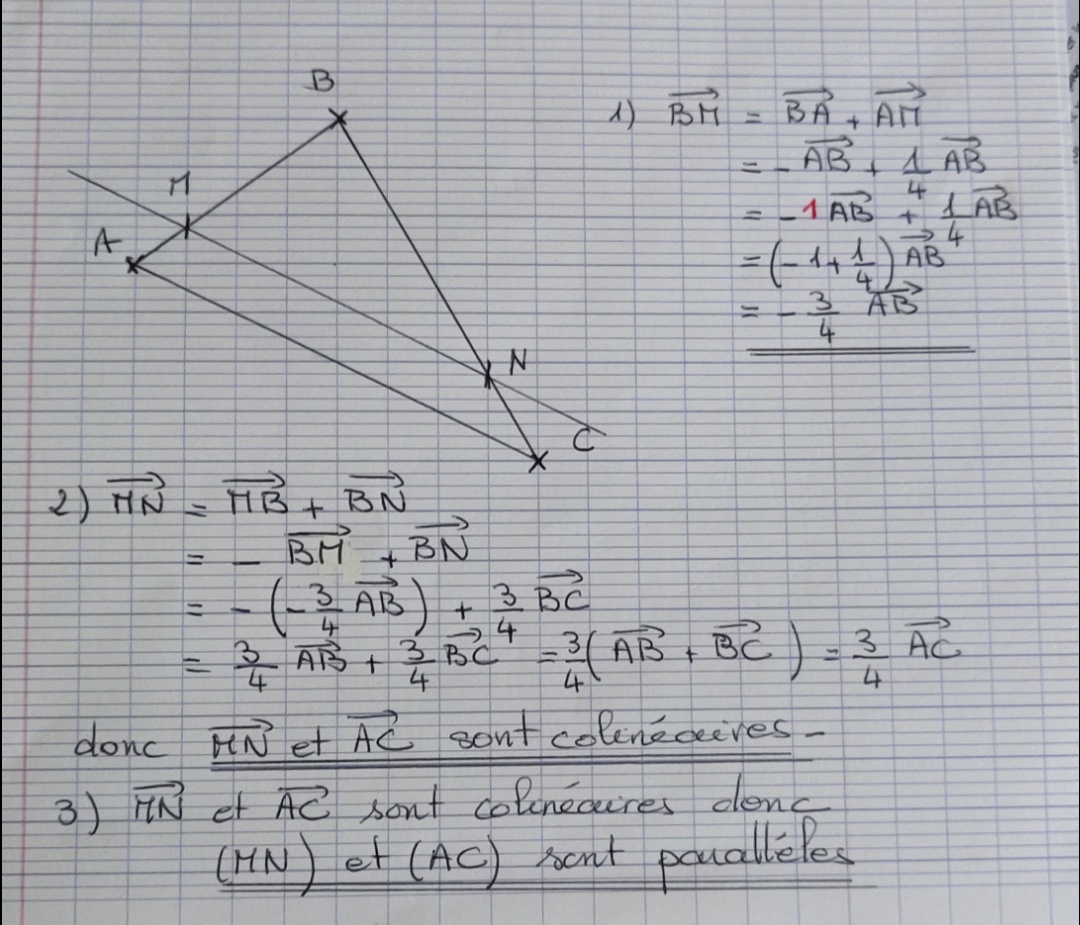 B
M
A
N
C
1) $\overrightarrow{BM} = \overrightarrow{BA} + \overrightarrow{AM}$
$= -\overrightarrow{AB} + \frac{1}{4}\overrightarrow{AB}$
$= -1\overrightarrow{AB} + \frac{1}{4}\overrightarrow{AB}$
$= \left(-1 + \frac{1}{4}\right)\overrightarrow{AB}$
$= -\frac{3}{4}\overrightarrow{AB}$
2) $\overrightarrow{MN} = \overrightarrow{MB} + \overrightarrow{BN}$
$= -\overrightarrow{BM} + \overrightarrow{BN}$
$= -\left(-\frac{3}{4}\overrightarrow{AB}\right) + \frac{3}{4}\overrightarrow{BC}$
$= \frac{3}{4}\overrightarrow{AB} + \frac{3}{4}\overrightarrow{BC} = \frac{3}{4}\left(\overrightarrow{AB} + \overrightarrow{BC}\right) = \frac{3}{4}\overrightarrow{AC}$
donc $\overrightarrow{MN}$ et $\overrightarrow{AC}$ sont colinéaires -
3) $\overrightarrow{MN}$ et $\overrightarrow{AC}$ sont colinéaires donc
(MN) et (AC) sont parallèles